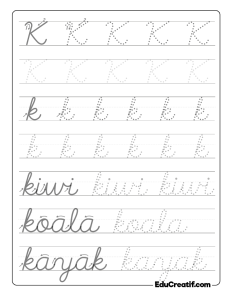 K K K K K K
K K K K K K
k k k k k k
k k k k k k
kiwi kiwi kiwi
koala koala
kayak kayak
EduCreatif.com